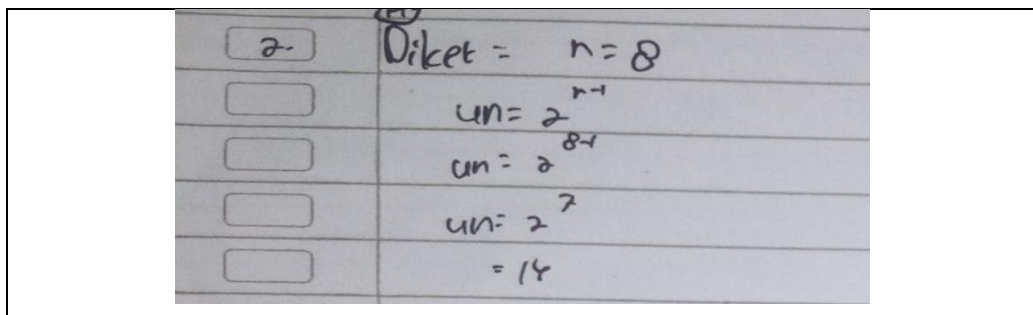 2. Diket = n = 8
un = 2^{n-1}
un = 2^{8-1}
un = 2^7
= 14